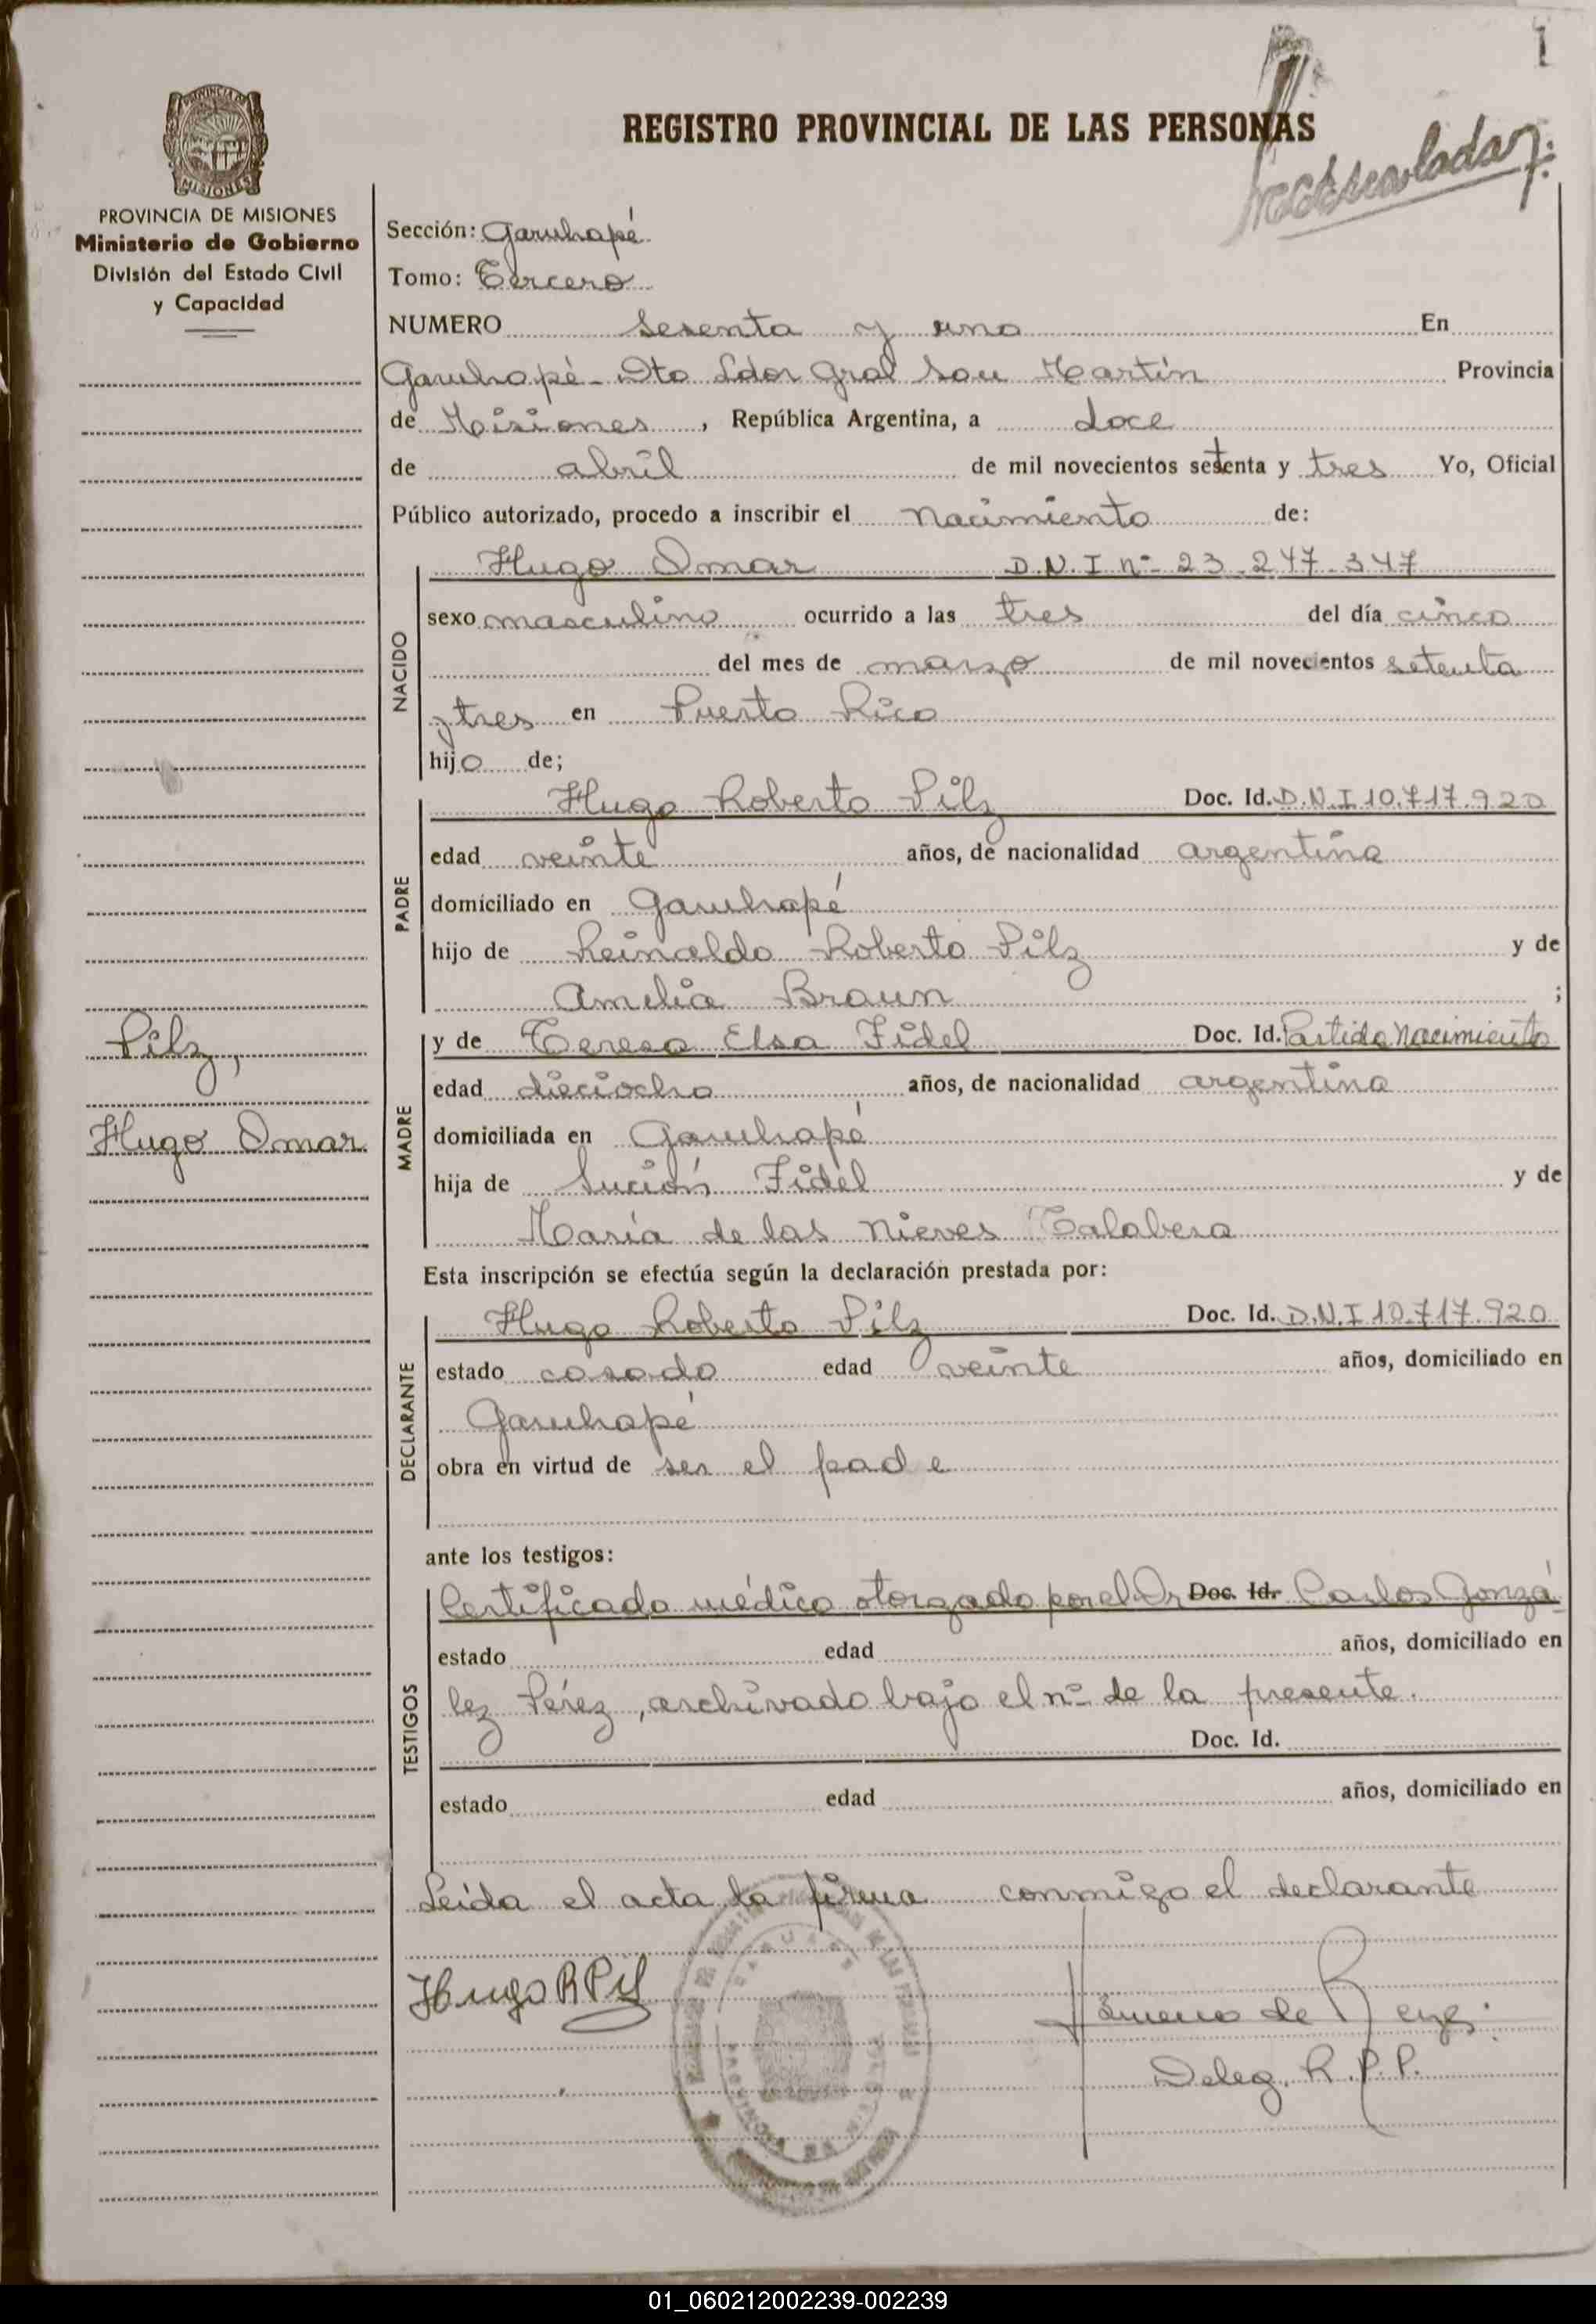 1
REGISTRO PROVINCIAL DE LAS PERSONAS
PROVINCIA DE MISIONES
MISIONES
PROVINCIA DE MISIONES
Ministerio de Gobierno
División del Estado Civil
y Capacidad
Sección: Garuhapé
Tomo: Tercero
NUMERO sesenta y uno En
Garuhapé - Dto Ldor Gral San Martín Provincia
de Misiones, República Argentina, a doce
de abril de mil novecientos setenta y tres Yo, Oficial
Público autorizado, procedo a inscribir el nacimiento de:
NACIDO
Hugo Omar D.N.I nº 23.247.347
sexo masculino ocurrido a las tres del día cinco
del mes de marzo de mil novecientos setenta
y tres en Puerto Rico
hijo de;
PADRE
Hugo Roberto Pilz Doc. Id. D.N.I 10.717.920
edad veinte años, de nacionalidad argentina
domiciliado en Garuhapé
hijo de Reinaldo Roberto Pilz y de
Amelia Braun ;
Pilz,
Hugo Omar
MADRE
y de Teresa Elsa Fidel Doc. Id. Partida Nacimiento
edad dieciocho años, de nacionalidad argentina
domiciliada en Garuhapé
hija de Fidel y de
María de las Nieves Talabera
Esta inscripción se efectúa según la declaración prestada por:
DECLARANTE
Hugo Roberto Pilz Doc. Id. D.N.I 10.717.920
estado casado edad veinte años, domiciliado en
Garuhapé
obra en virtud de ser el pad e
ante los testigos:
TESTIGOS
Certificado médico otorgado por el Dr Doc. Id. Carlos Gonzá
estado edad años, domiciliado en
lez Pérez, archivado bajo el nº de la presente.
Doc. Id.
estado edad años, domiciliado en
Leída el acta la firma conmigo el declarante
Hugo R Pilz
de Reyes
Deleg. R.P.P.
01_060212002239-002239